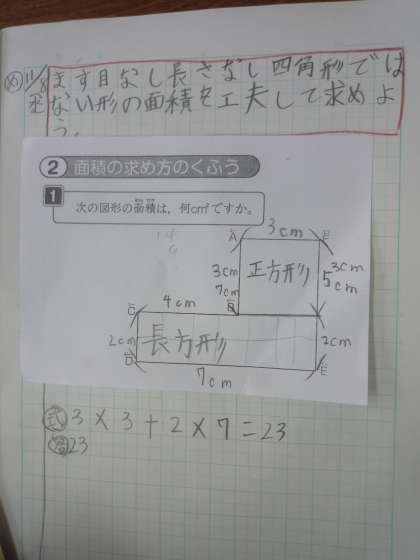 め 11/8 ます目なし長さなし四角形では
ない形の面積を工夫して求めよ
う。
2 面積の求め方のくふう
1 次の図形の面積は、何cm²ですか。
A 3cm F
3cm 正方形 3cm
7cm 5cm
4cm
C B
2cm 長方形 2cm
D E
7cm
式 3×3+2×7=23
答 23